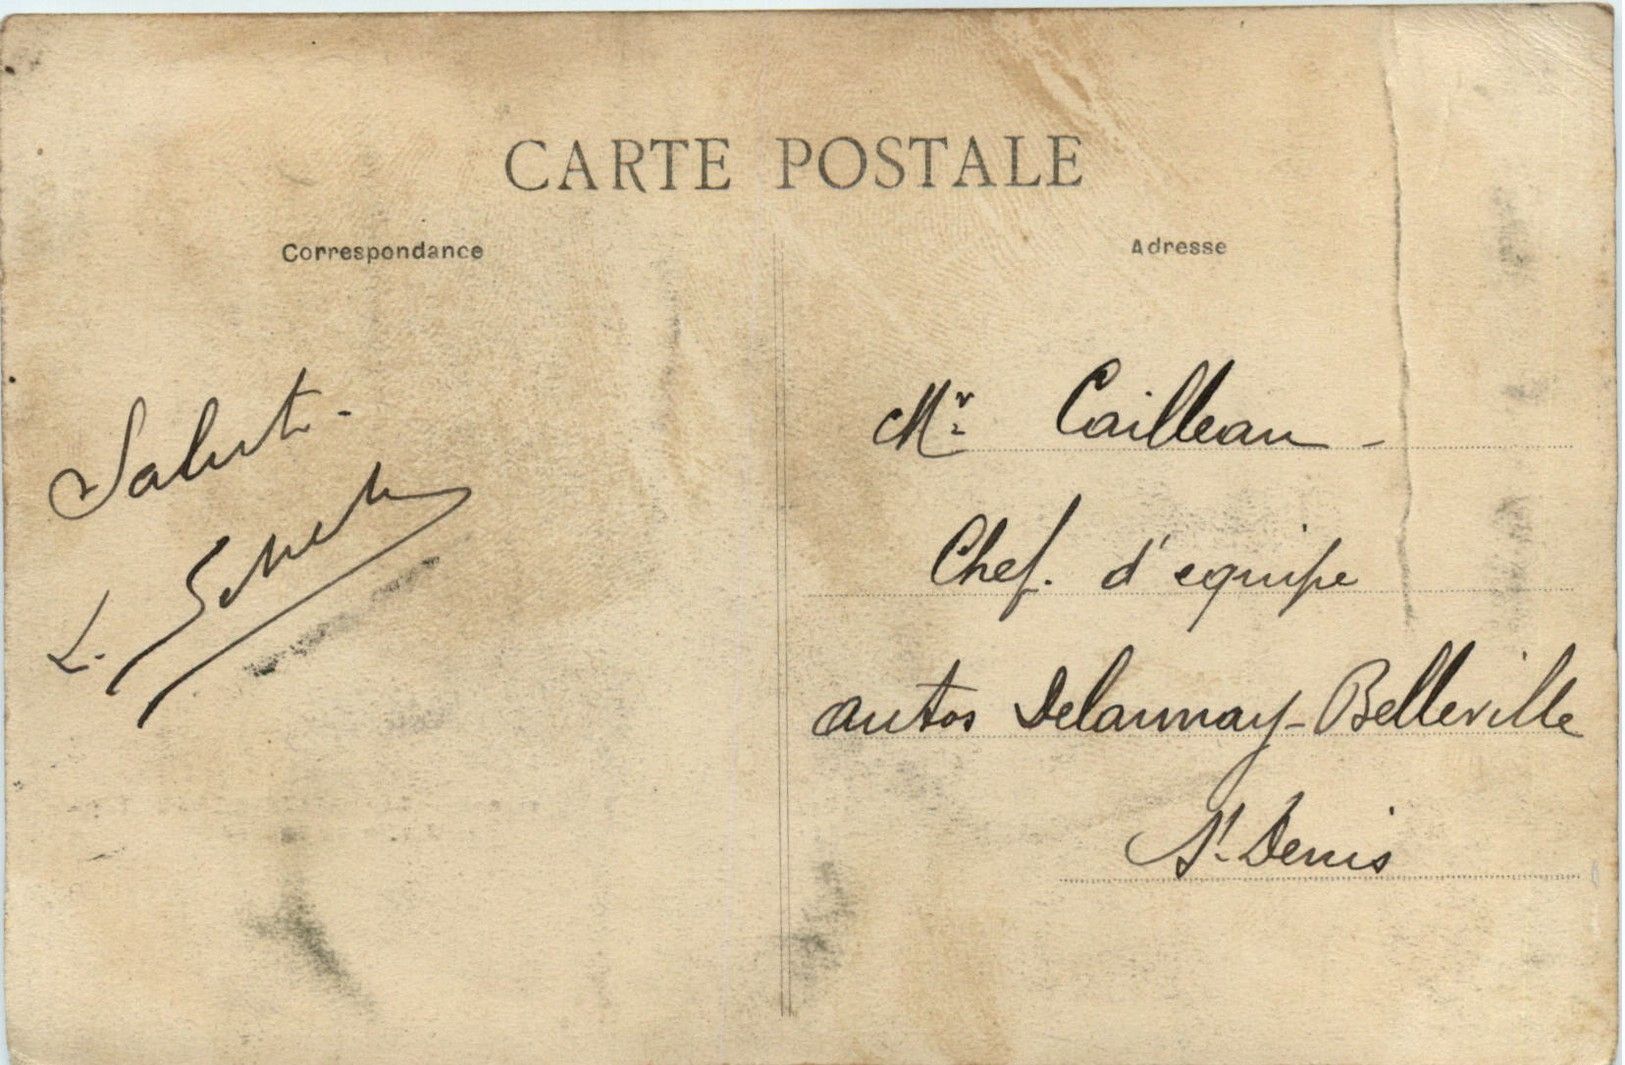 CARTE POSTALE
Correspondance
Salut.
L.
Adresse
Mr. Cailleau -
Chef. d'equipe
autos Delaunay-Belleville
St. Denis